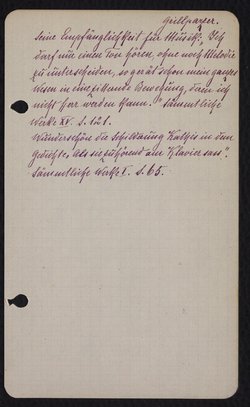 Grillparzer.
Seine Empfänglichkeit für Musik: „Ich
darf nur einen Ton hören, ohne noch Melodie
zu unterscheiden, so gerät schon mein ganzes
Wesen in eine zitternde Bewegung, deren ich
nicht Herr werden kann." Sämmtliche
Werke XV. S. 121.
Wunderschön die Schilderung Kathis in dem
Gedichte, „Als sie zuhörend am Klavier sass".
Sämmtliche Werke I. S. 65.